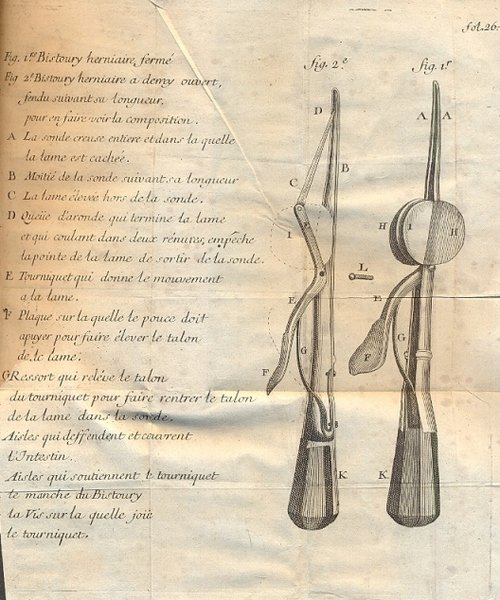 fol. 26.
fig. 2e
fig. 1r
Fig. 1re Bistoury herniaire, fermé
Fig 2e Bistoury herniaire a demy ouvert,
fendu suivant sa longueur,
pour en faire voir la composition.
A La sonde creuse entiere et dans la quelle
la lame est cachée.
B Moitié de la sonde suivant sa longueur
C La lame élevée hors de la sonde.
D Queüe d'aronde qui termine la lame
et qui coulant dans deux rénures, empêche
la pointe de la lame de sortir de la sonde.
E Tourniquet qui donne le mouvement
a la lame.
F Plaque sur la quelle le pouce doit
apuyer pour faire élever le talon
de la lame.
G Ressort qui reléve le talon
du tourniquet pour faire rentrer le talon
de la lame dans la sonde.
Aisles qui deffendent et couvrent
l'Intestin.
Aisles qui soutiennent le tourniquet
le manche du Bistoury
la Vis sur la quelle joüe
le tourniquet.
D
B
C
I
L
E
F
G
K
A
A
H
I
H
E
F
G
K